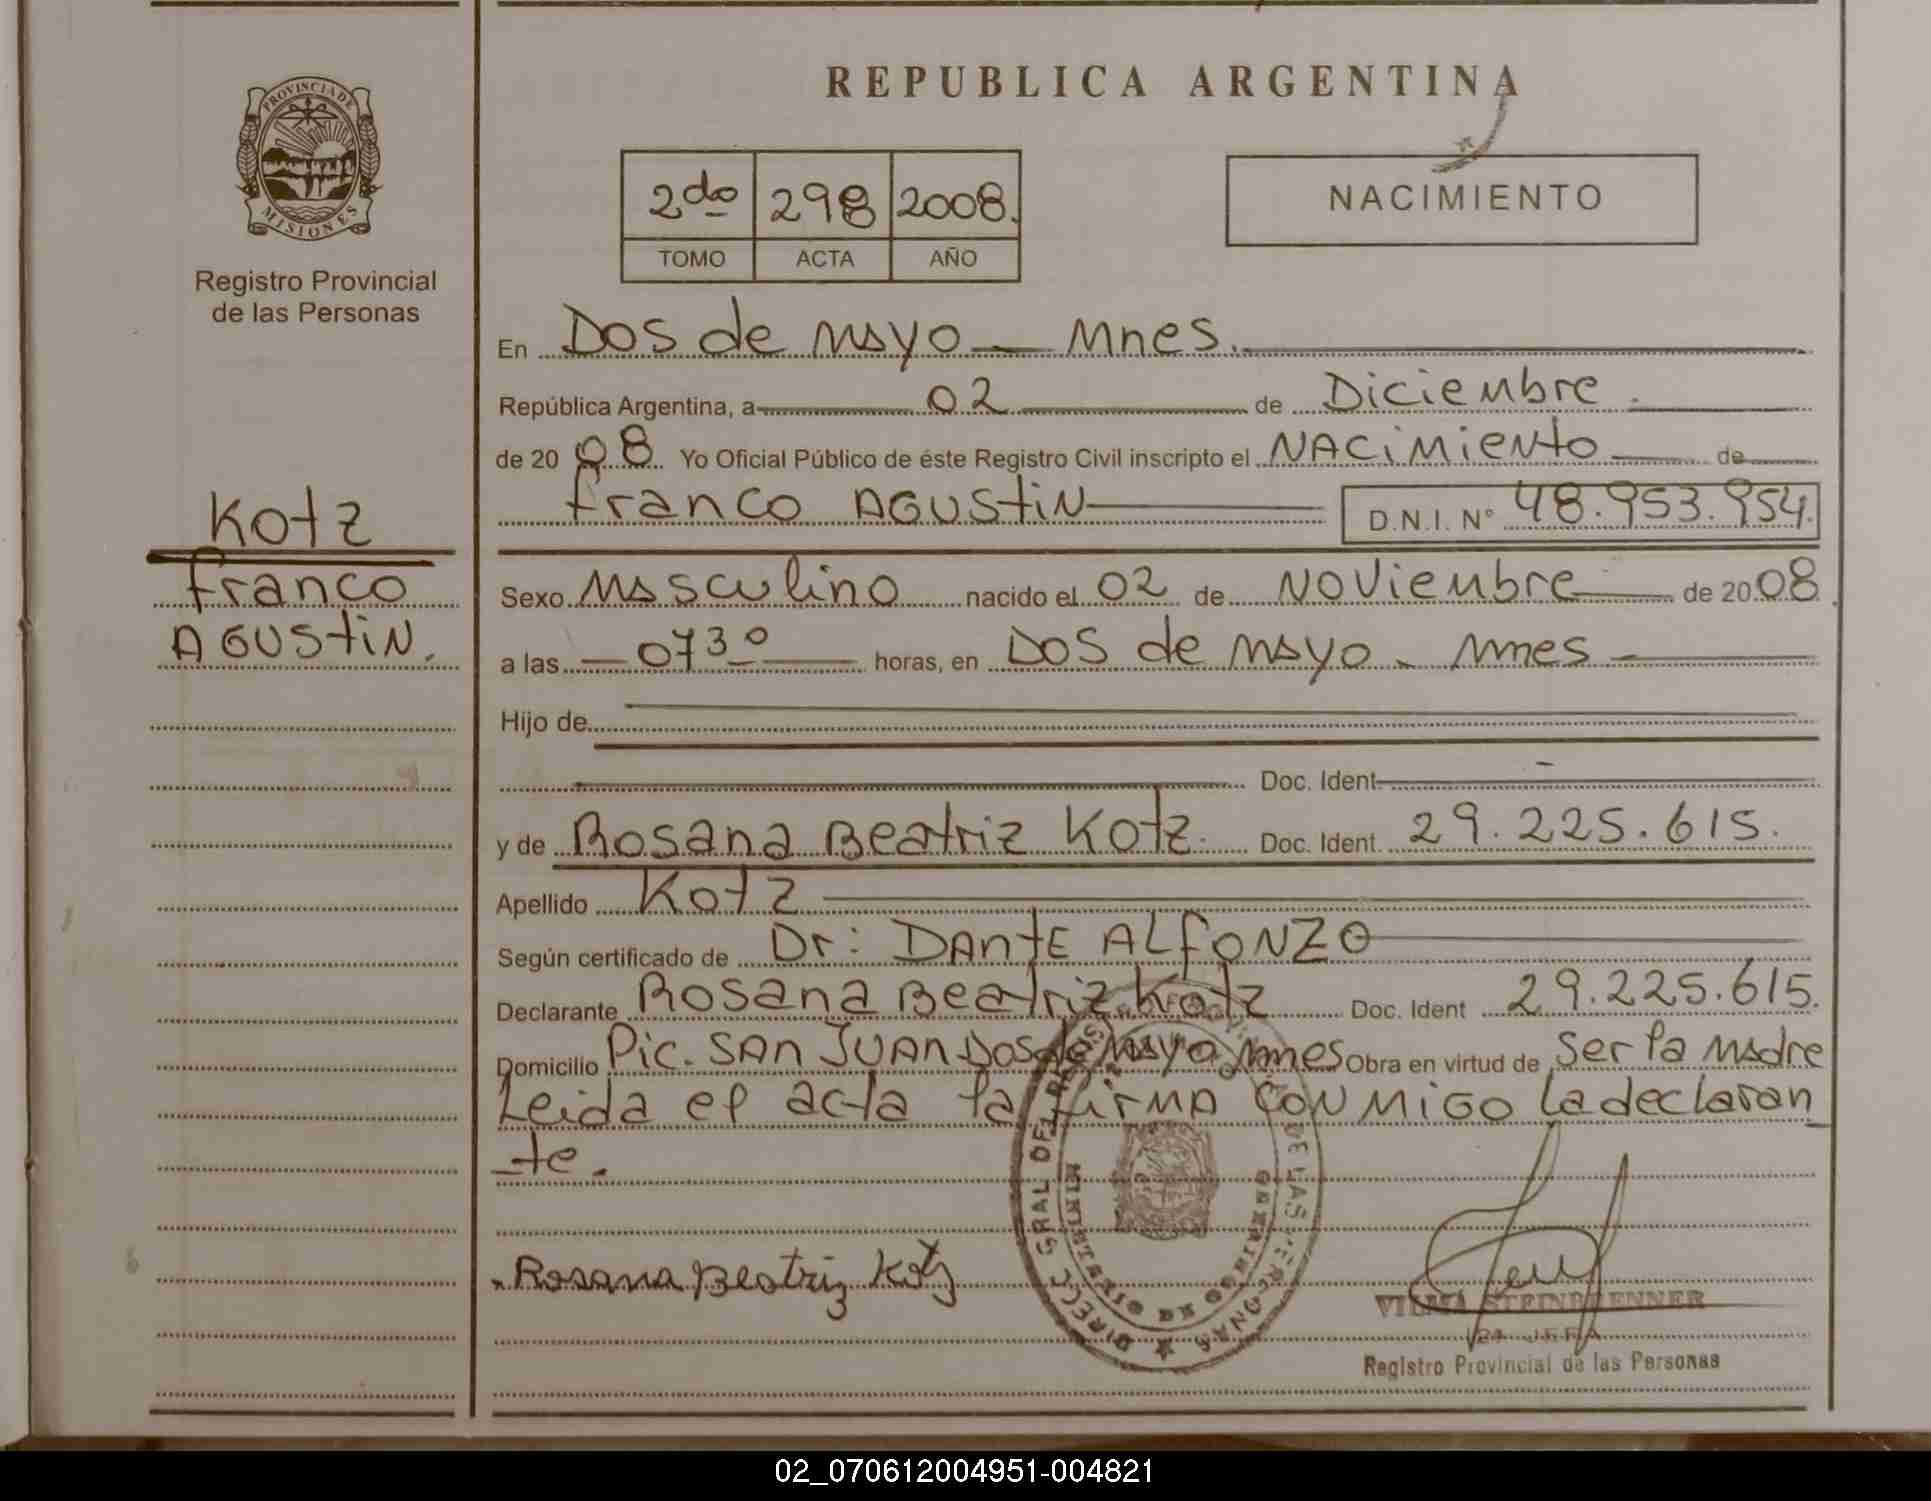 REPUBLICA ARGENTINA
PROVINCIA DE
MISIONES
Registro Provincial
de las Personas
2do 298 2008.
TOMO ACTA AÑO
NACIMIENTO
En Dos de Mayo - Mnes.
República Argentina, a 02 de Diciembre.
de 2008 Yo Oficial Público de éste Registro Civil inscripto el NACIMIENTO de
Franco AGUSTIN D.N.I. N° 48.953.954.
Kotz
Franco
AGUSTIN.
Sexo Masculino nacido el 02 de NOVIEMBRE de 2008
a las 0730 horas, en DOS de Mayo - Mnes
Hijo de
Doc. Ident
y de Rosana Beatriz Kotz. Doc. Ident. 29.225.615.
Apellido Kotz
Según certificado de Dr: DANTE ALFONZO
Declarante Rosana Beatriz Kotz Doc. Ident 29.225.615.
Domicilio Pic. SAN JUAN Dos de Mayo Mnes Obra en virtud de Ser la Madre
Leida el acta la firma CONMIGO la declaran
te.
Rosana Beatriz Kotz
VILMA STEINBRENNER
JEFA
Registro Provincial de las Personas
02_070612004951-004821